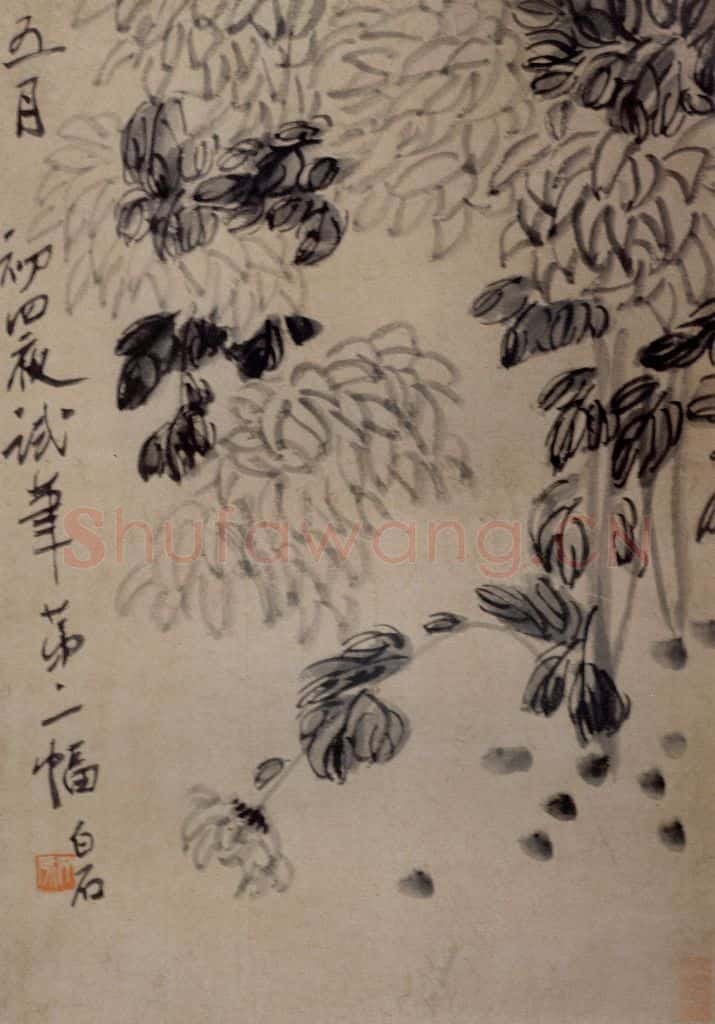 五月
初四夜试笔第二幅
白石
Shufawang.CN